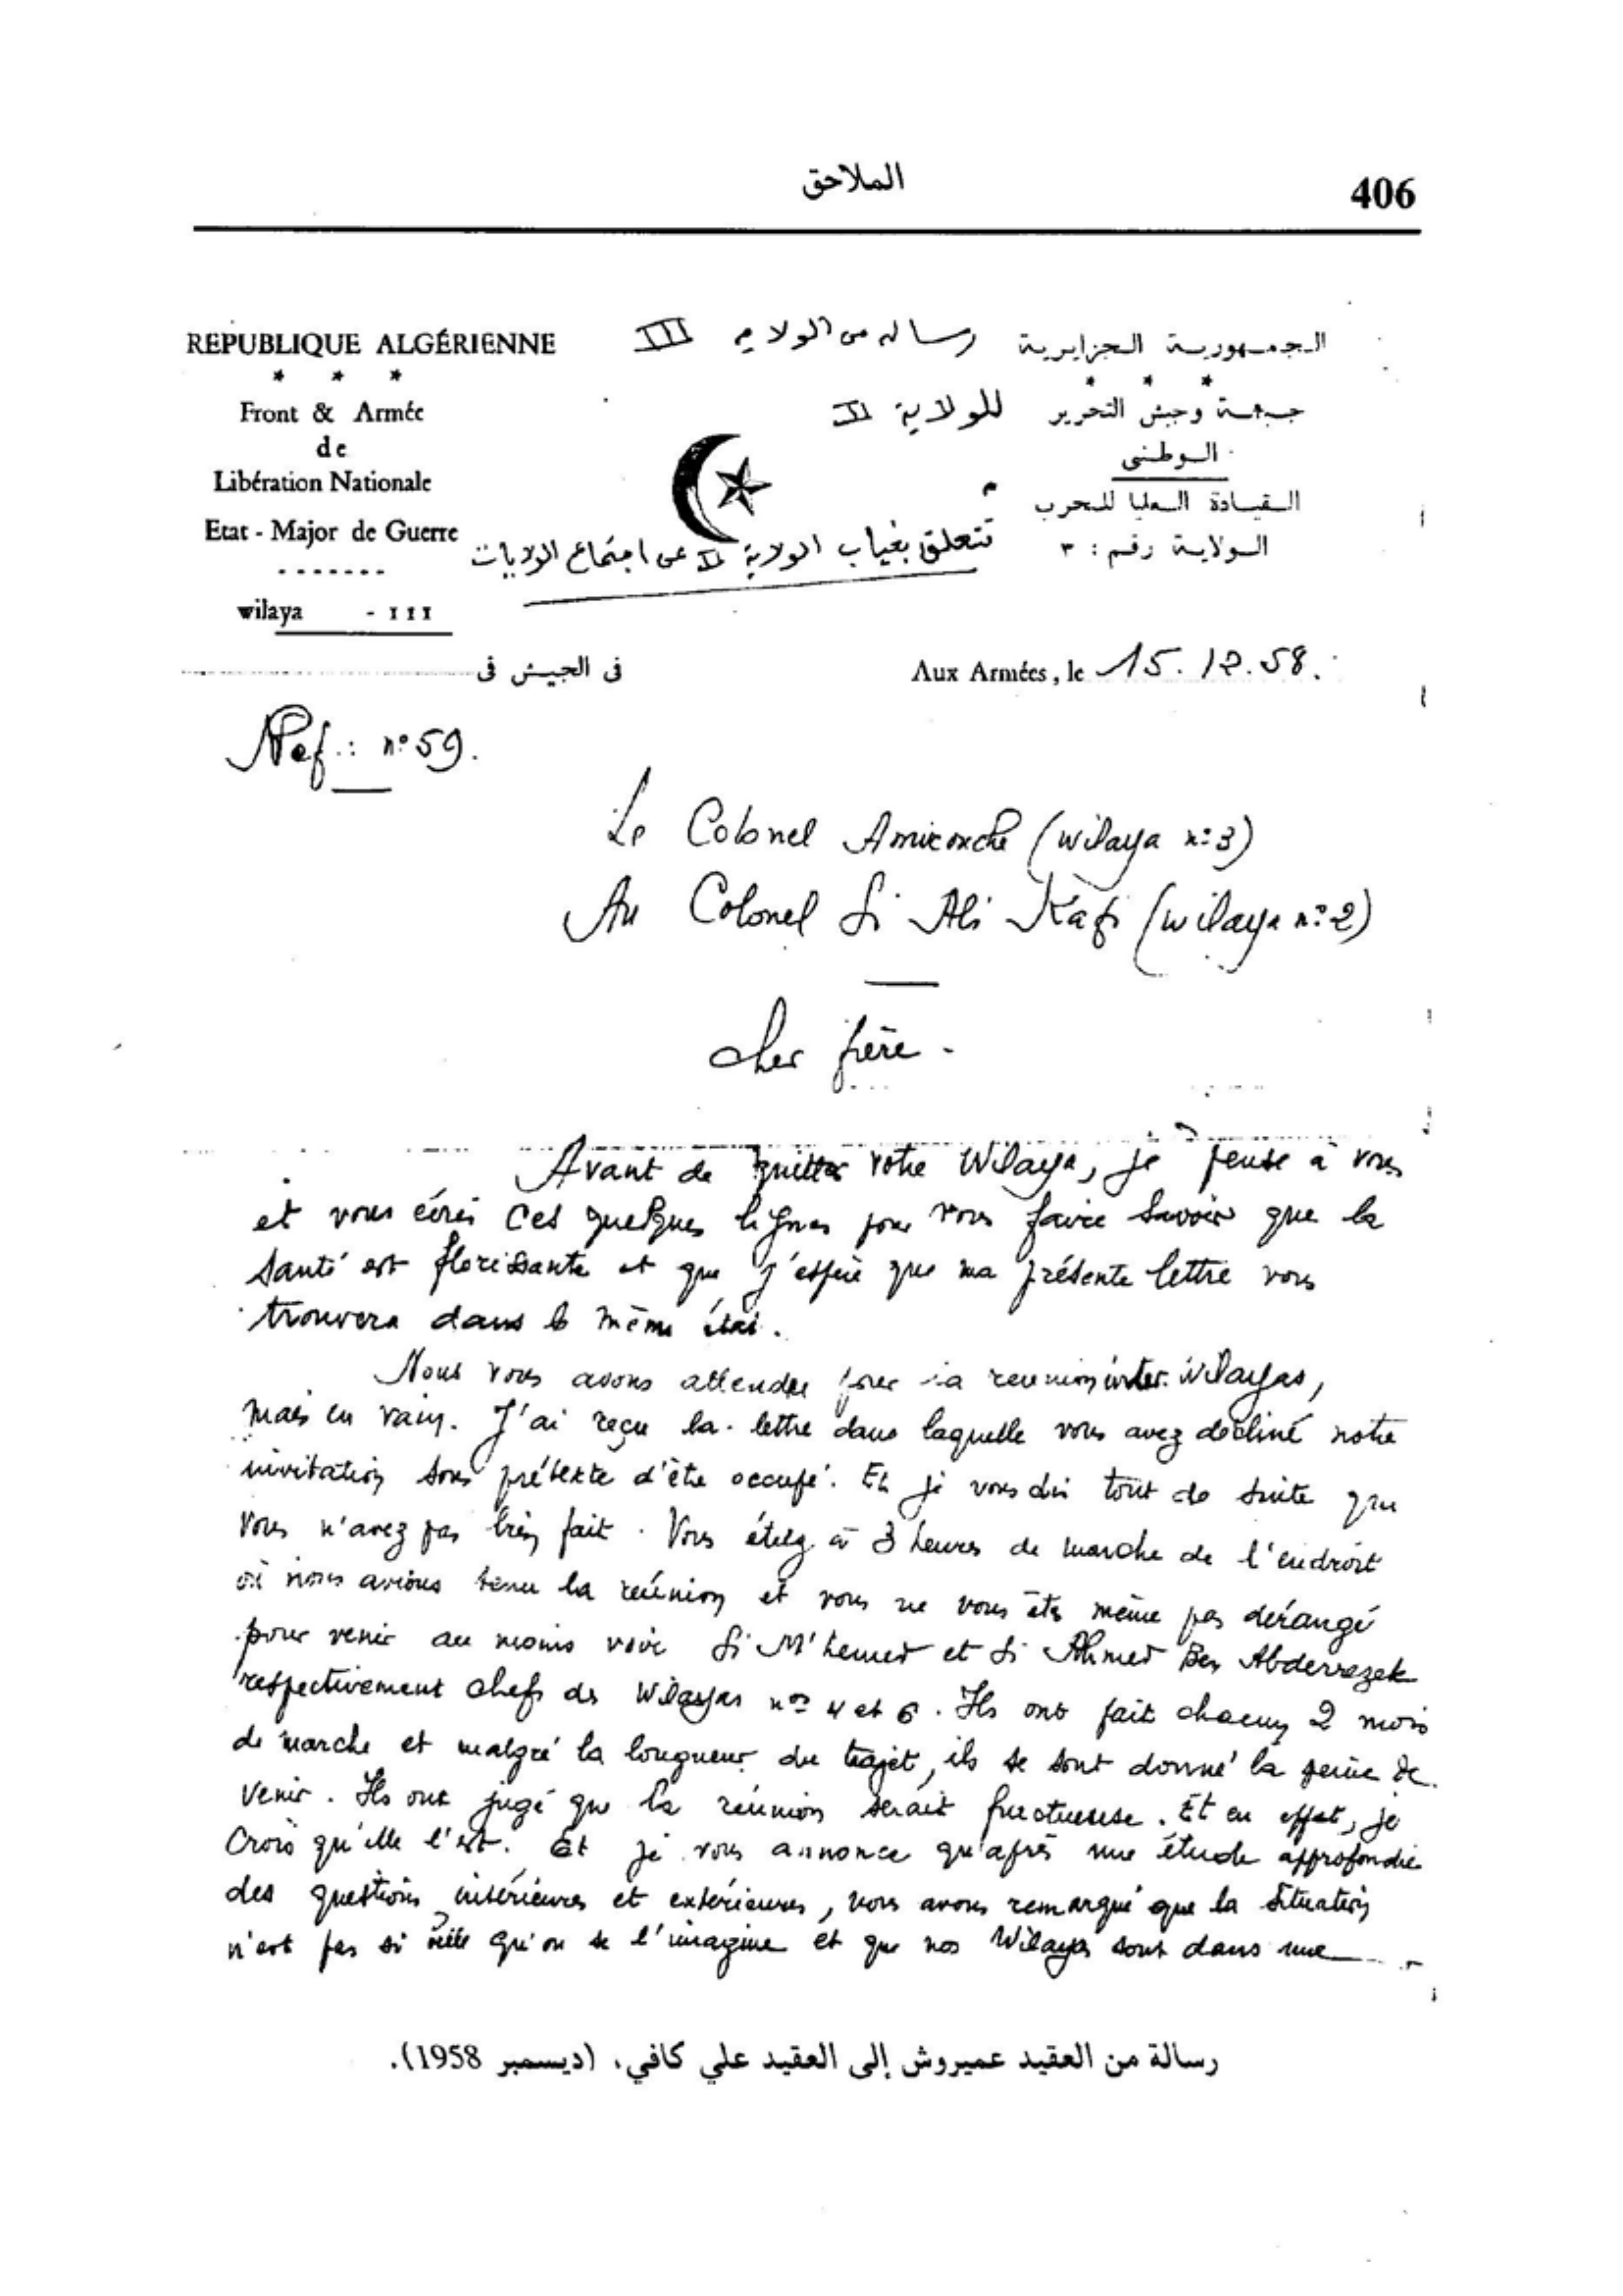 الملاحق
406
REPUBLIQUE ALGÉRIENNE
* * *
Front & Armée
de
Libération Nationale
Etat - Major de Guerre
wilaya - III
رسالة من الولاية III
للولاية II
تتعلق بغياب الولاية II عن اجتماع الولايات
الجمهورية الجزايرية
* * *
جبهة وجيش التحرير
الوطنى
القيادة العليا للحرب
الولاية رقم : ٣
فى الجيش فى
Aux Armées, le 15.12.58.
Ref.: n° 59.
Le Colonel Amirouche (wilaya n° 3)
Au Colonel Si Ali Kafi (wilaya n° 2)
Cher frère -
Avant de quitter votre Wilaya, je pense à vous
et vous écris ces quelques lignes pour vous faire savoir que la
santé est florissante et que j'espère que ma présente lettre vous
trouvera dans le même état.
Nous vous avons attendu pour la réunion inter-wilayas,
mais en vain. J'ai reçu la lettre dans laquelle vous avez décliné notre
invitation sous prétexte d'être occupé. Et je vous dis tout de suite que
vous n'avez pas bien fait. Vous étiez à 3 heures de marche de l'endroit
où nous avions tenu la réunion et vous ne vous êtes même pas dérangé
pour venir au moins voir Si M'hamed et Si Ahmed Ben Abderrezek
respectivement chefs des Wilayas nos 4 et 6. Ils ont fait chacun 2 mois
de marche et malgré la longueur du trajet, ils se sont donné la peine de
venir. Ils ont jugé que la réunion serait fructueuse. Et en effet, je
crois qu'elle l'est. Et je vous annonce qu'après une étude approfondie
des questions intérieures et extérieures, nous avons remarqué que la situation
n'est pas si qu'on se l'imagine et que nos Wilayas sont dans une
رسالة من العقيد عميروش إلى العقيد علي كافي، (ديسمبر 1958).